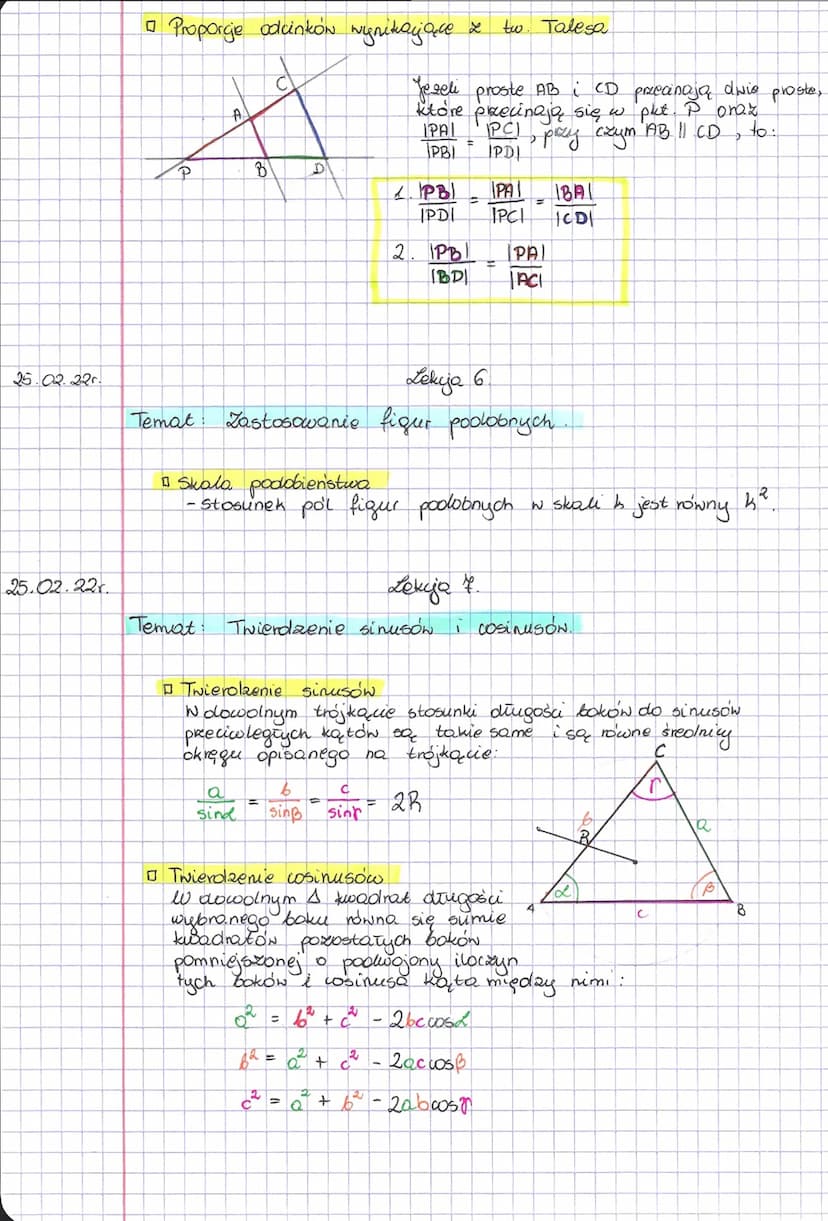 Proporcje odcinków wynikające z tw. Talesa
Jeżeli proste AB i CD przecinają dwie proste,
które przecinają się w pkt. P oraz
|PA| / |PB| = |PC| / |PD| , przy czym AB || CD , to:
C
A
P
B
D
1. |PB| / |PD| = |PA| / |PC| = |BA| / |CD|
2. |PB| / |BD| = |PA| / |AC|
25.02.22r.
Lekcja 6.
Temat: Zastosowanie figur podobnych.
Skala podobieństwa
- stosunek pól figur podobnych w skali k jest równy k².
25.02.22r.
Lekcja 7.
Temat: Twierdzenie sinusów i cosinusów.
Twierdzenie sinusów
W dowolnym trójkącie stosunki długości boków do sinusów
przeciwległych kątów są takie same i są równe średnicy
okręgu opisanego na trójkącie:
a / sinα = b / sinβ = c / sinγ = 2R
C
γ
b
a
R
α
β
A
c
B
Twierdzenie cosinusów
W dowolnym Δ kwadrat długości
wybranego boku równa się sumie
kwadratów pozostałych boków
pomniejszonej o podwojony iloczyn
tych boków i cosinusa kąta między nimi:
a² = b² + c² - 2bccosα
b² = a² + c² - 2accosβ
c² = a² + b² - 2abcosγ